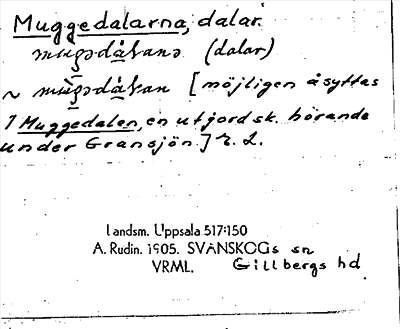 Muggedalarna, dalar.
mugədalana (dalar)
~ mugədalan [möjligen åsyftas
1 Muggedalen, en utjord sk. hörande
under Gransjön.] r. 2.
Landsm. Uppsala 517:150
A. Rudin. 1905. SVANSKOGs sn
VRML. Gillbergs hd